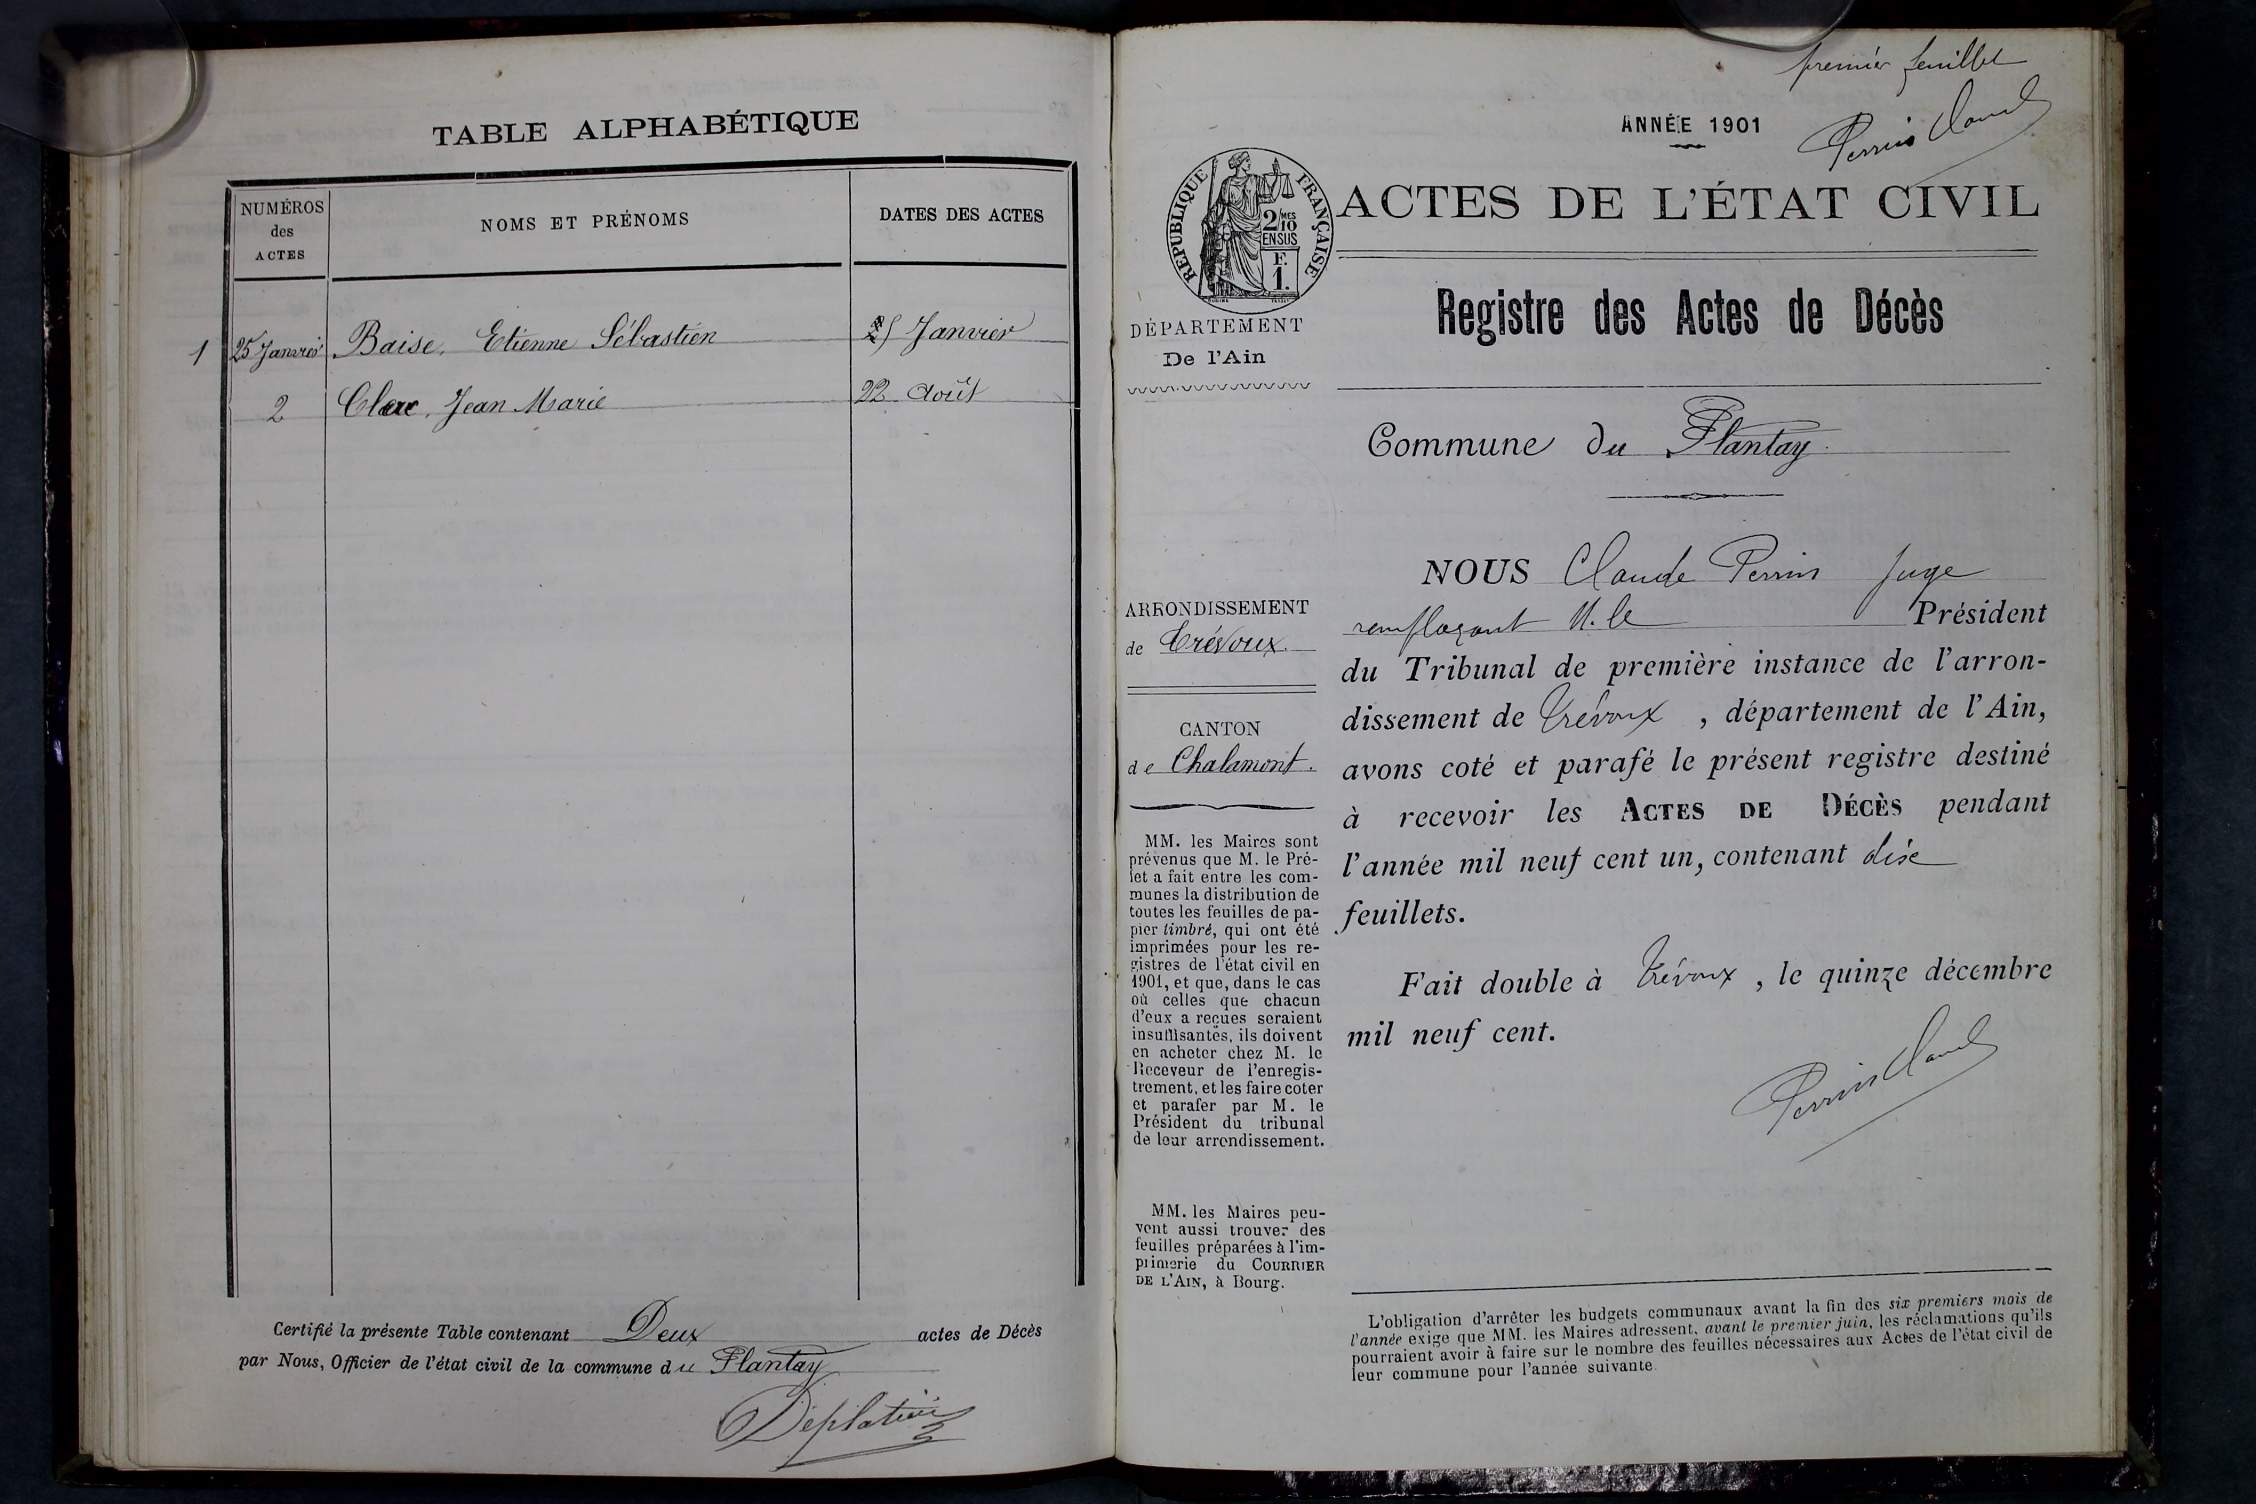 TABLE ALPHABÉTIQUE
NUMÉROS
des
ACTES
NOMS ET PRÉNOMS
DATES DES ACTES
1 25 Janvier Baise, Etienne Sébastien 25 Janvier
2 Clerc, Jean Marie 22 Août
Certifié la présente Table contenant Deux actes de Décès
par Nous, Officier de l'état civil de la commune du Plantay
premier feuillet
ANNÉE 1901
Perrin Claude
RÉPUBLIQUE FRANÇAISE
2/10 MES
EN SUS
F.
1.
ACTES DE L'ÉTAT CIVIL
DÉPARTEMENT
De l'Ain
Registre des Actes de Décès
Commune du Plantay
ARRONDISSEMENT
de Trévoux.
CANTON
de Chalamont.
MM. les Maires sont
prévenus que M. le Pré-
fet a fait entre les com-
munes la distribution de
toutes les feuilles de pa-
pier timbré, qui ont été
imprimées pour les re-
gistres de l'état civil en
1901, et que, dans le cas
où celles que chacun
d'eux a reçues seraient
insuffisantes, ils doivent
en acheter chez M. le
Receveur de l'enregis-
trement, et les faire coter
et parafer par M. le
Président du tribunal
de leur arrondissement.
MM. les Maires peu-
vent aussi trouver des
feuilles préparées à l'im-
primerie du COURRIER
DE L'AIN, à Bourg.
NOUS Claude Perrin Juge
remplaçant M. le Président
du Tribunal de première instance de l'arron-
dissement de Trévoux, département de l'Ain,
avons coté et parafé le présent registre destiné
à recevoir les ACTES DE DÉCÈS pendant
l'année mil neuf cent un, contenant
feuillets.
Fait double à Trévoux, le quinze décembre
mil neuf cent.
Perrin Claude
L'obligation d'arrêter les budgets communaux avant la fin des six premiers mois de
l'année exige que MM. les Maires adressent, avant le premier juin, les réclamations qu'ils
pourraient avoir à faire sur le nombre des feuilles nécessaires aux Actes de l'état civil de
leur commune pour l'année suivante.